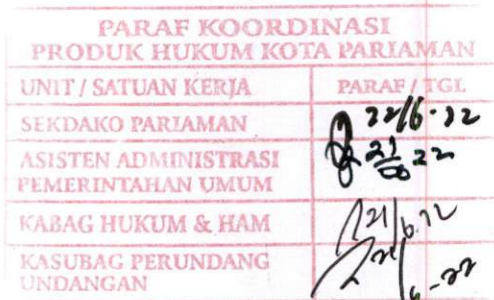 PARAF KOORDINASI
PRODUK HUKUM KOTA PARIAMAN
UNIT / SATUAN KERJA PARAF / TGL
SEKDAKO PARIAMAN 22/6-22
ASISTEN ADMINISTRASI
PEMERINTAHAN UMUM
KABAG HUKUM & HAM 21/6.22
KASUBAG PERUNDANG
UNDANGAN